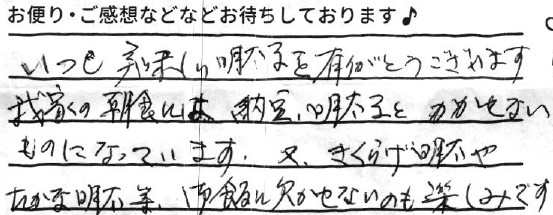 お便り・ご感想などなどお待ちしております♪
いつも美味しい明太子を有がとうございます
我家の朝食には納豆、明太子とかかせない
ものになっています。又、きくらげ明太や
たかな明太等、御飯に欠かせないのも楽しみです